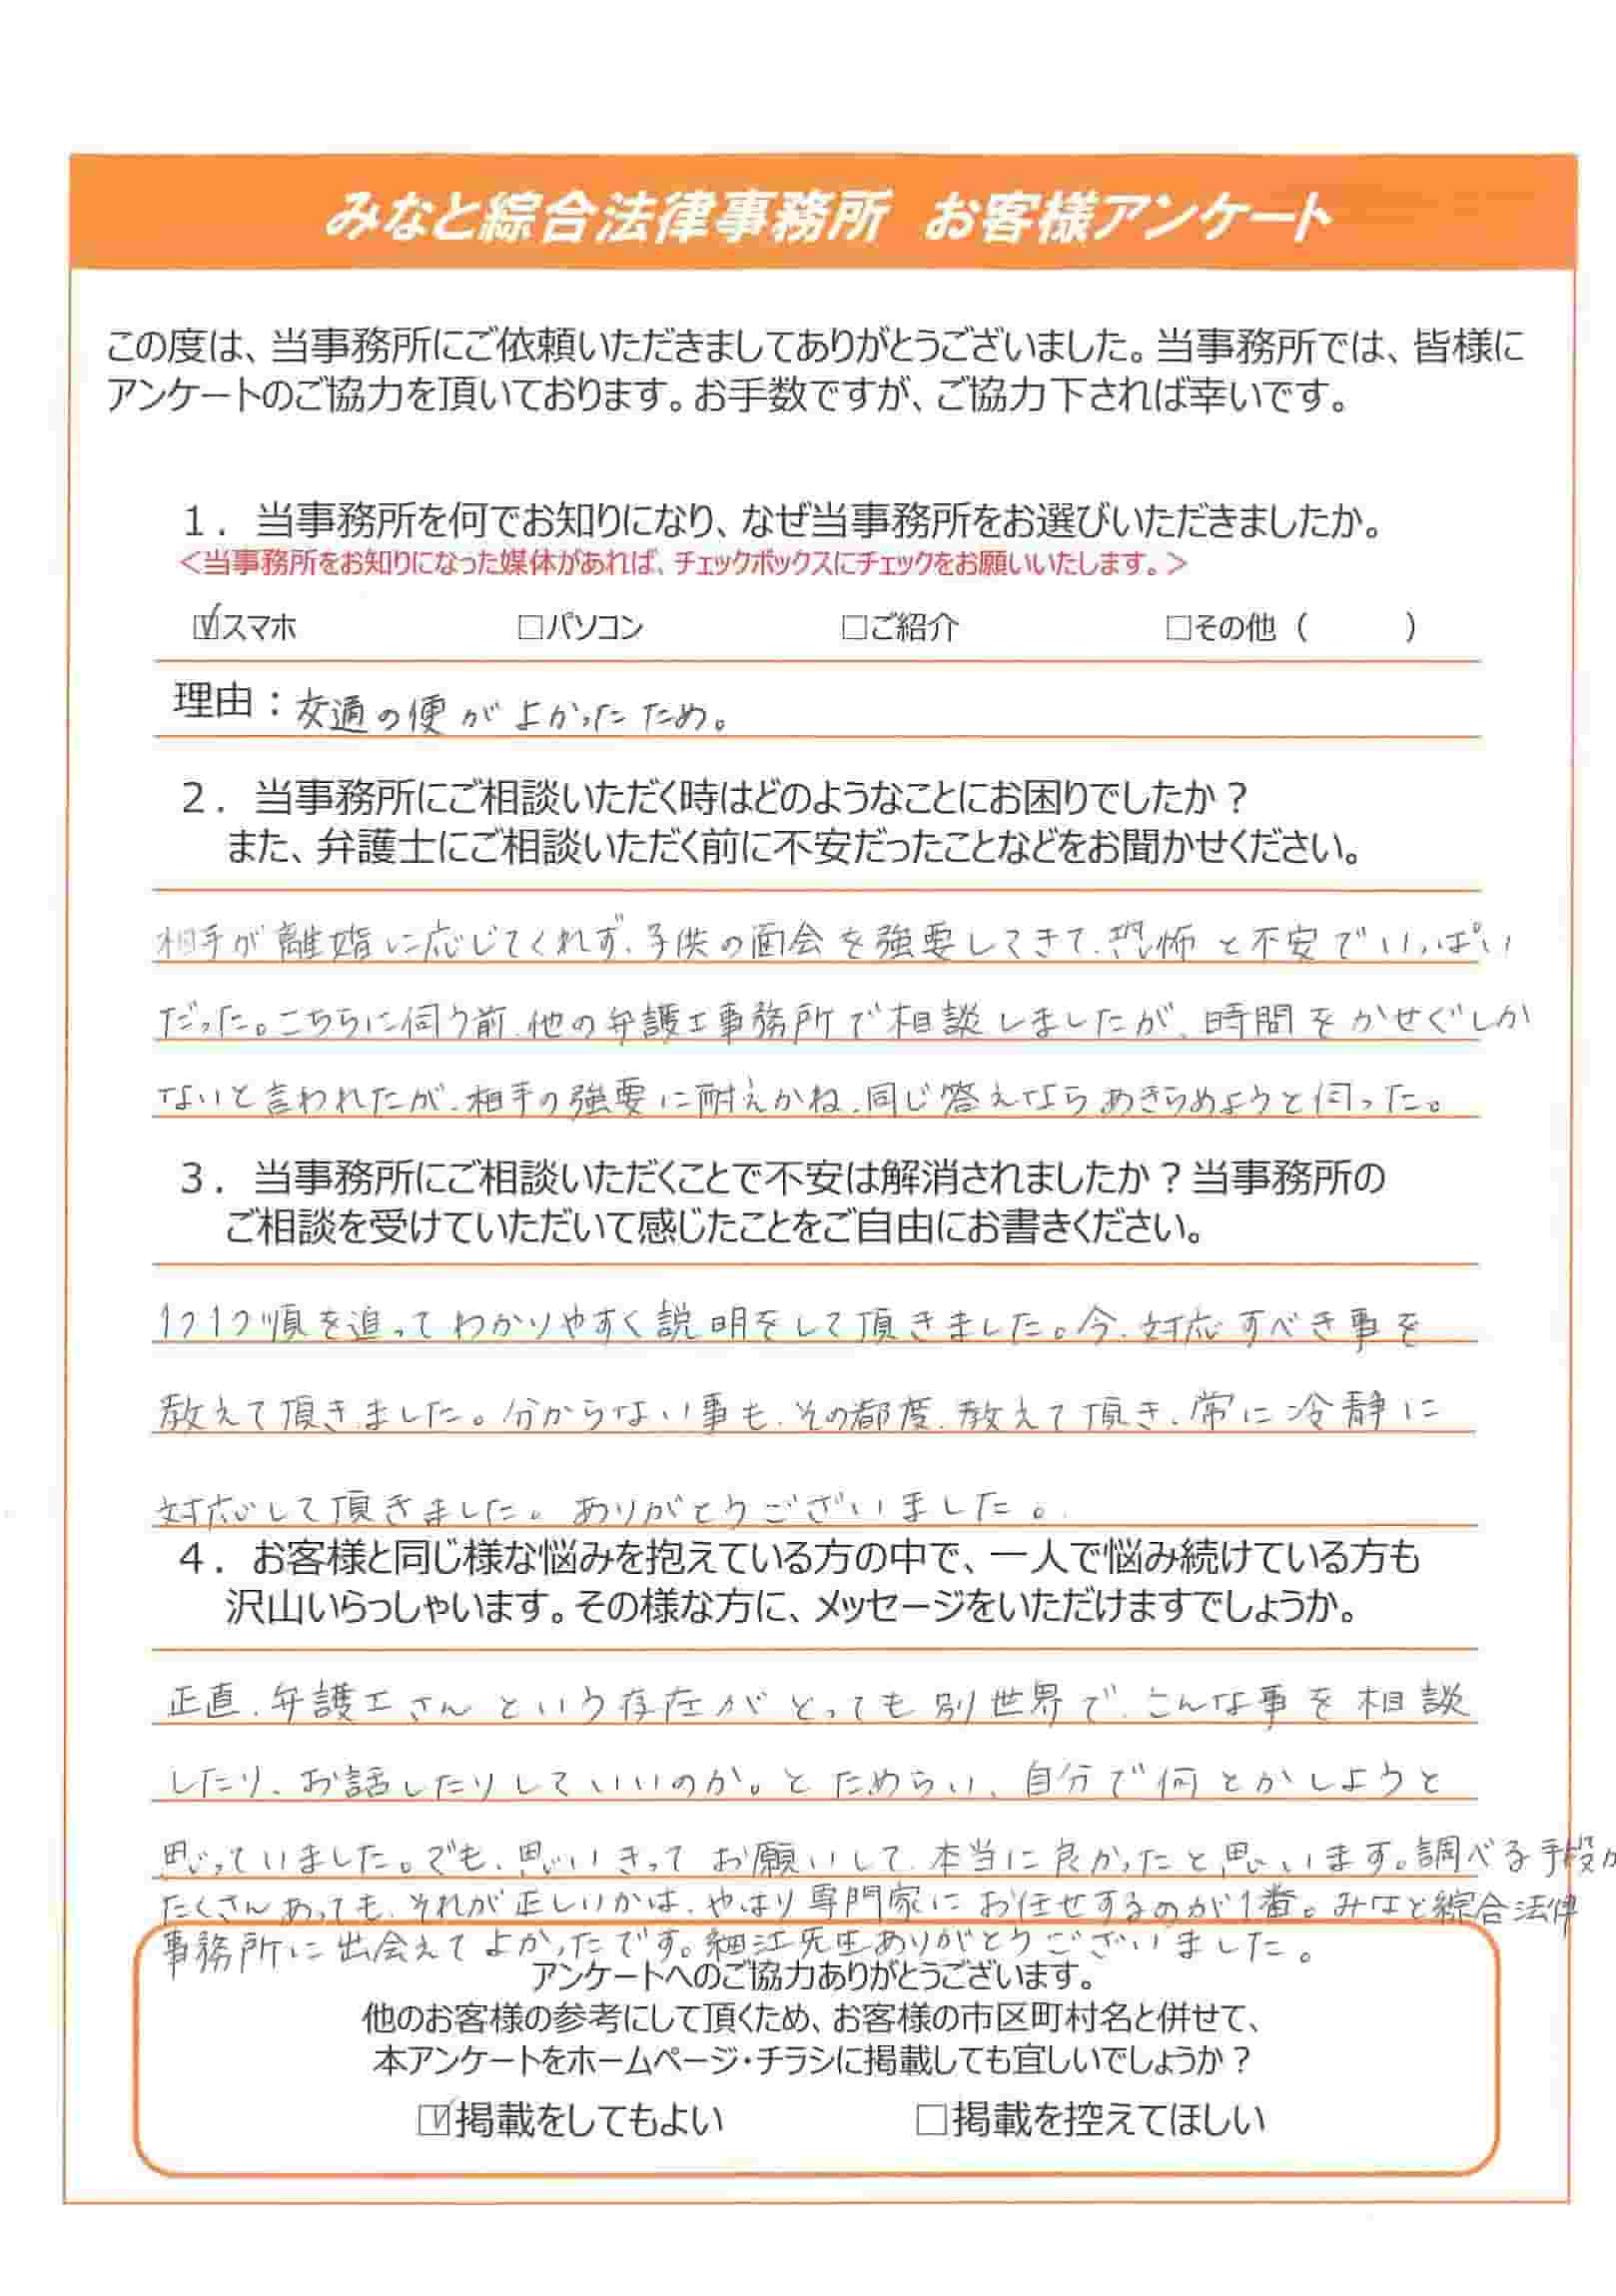 みなと綜合法律事務所　お客様アンケート
この度は、当事務所にご依頼いただきましてありがとうございました。当事務所では、皆様に
アンケートのご協力を頂いております。お手数ですが、ご協力下されば幸いです。
１．当事務所を何でお知りになり、なぜ当事務所をお選びいただきましたか。
＜当事務所をお知りになった媒体があれば、チェックボックスにチェックをお願いいたします。＞
☑スマホ　□パソコン　□ご紹介　□その他（　　　）
理由：交通の便がよかったため。
２．当事務所にご相談いただく時はどのようなことにお困りでしたか？
また、弁護士にご相談いただく前に不安だったことなどをお聞かせください。
相手が離婚に応じてくれず、子供の面会を強要してきて、恐怖と不安でいっぱい
だった。こちらに伺う前、他の弁護士事務所で相談しましたが、時間をかせぐしか
ないと言われたが、相手の強要に耐えかね、同じ答えならあきらめようと伺った。
３．当事務所にご相談いただくことで不安は解消されましたか？当事務所の
ご相談を受けていただいて感じたことをご自由にお書きください。
1つ1つ順を追ってわかりやすく説明をして頂きました。今、対応すべき事を
教えて頂きました。分からない事も、その都度、教えて頂き、常に冷静に
対応して頂きました。ありがとうございました。
４．お客様と同じ様な悩みを抱えている方の中で、一人で悩み続けている方も
沢山いらっしゃいます。その様な方に、メッセージをいただけますでしょうか。
正直、弁護士さんという存在がとっても別世界で、こんな事を相談
したり、お話したりしていいのか。とためらい、自分で何とかしようと
思っていました。でも、思いきってお願いして、本当に良かったと思います。調べる手段が
たくさんあっても、それが正しいかは、やはり専門家にお任せするのが1番。みなと綜合法律
事務所に出会えてよかったです。細江先生ありがとうございました。
アンケートへのご協力ありがとうございます。
他のお客様の参考にして頂くため、お客様の市区町村名と併せて、
本アンケートをホームページ・チラシに掲載しても宜しいでしょうか？
☑掲載をしてもよい　□掲載を控えてほしい